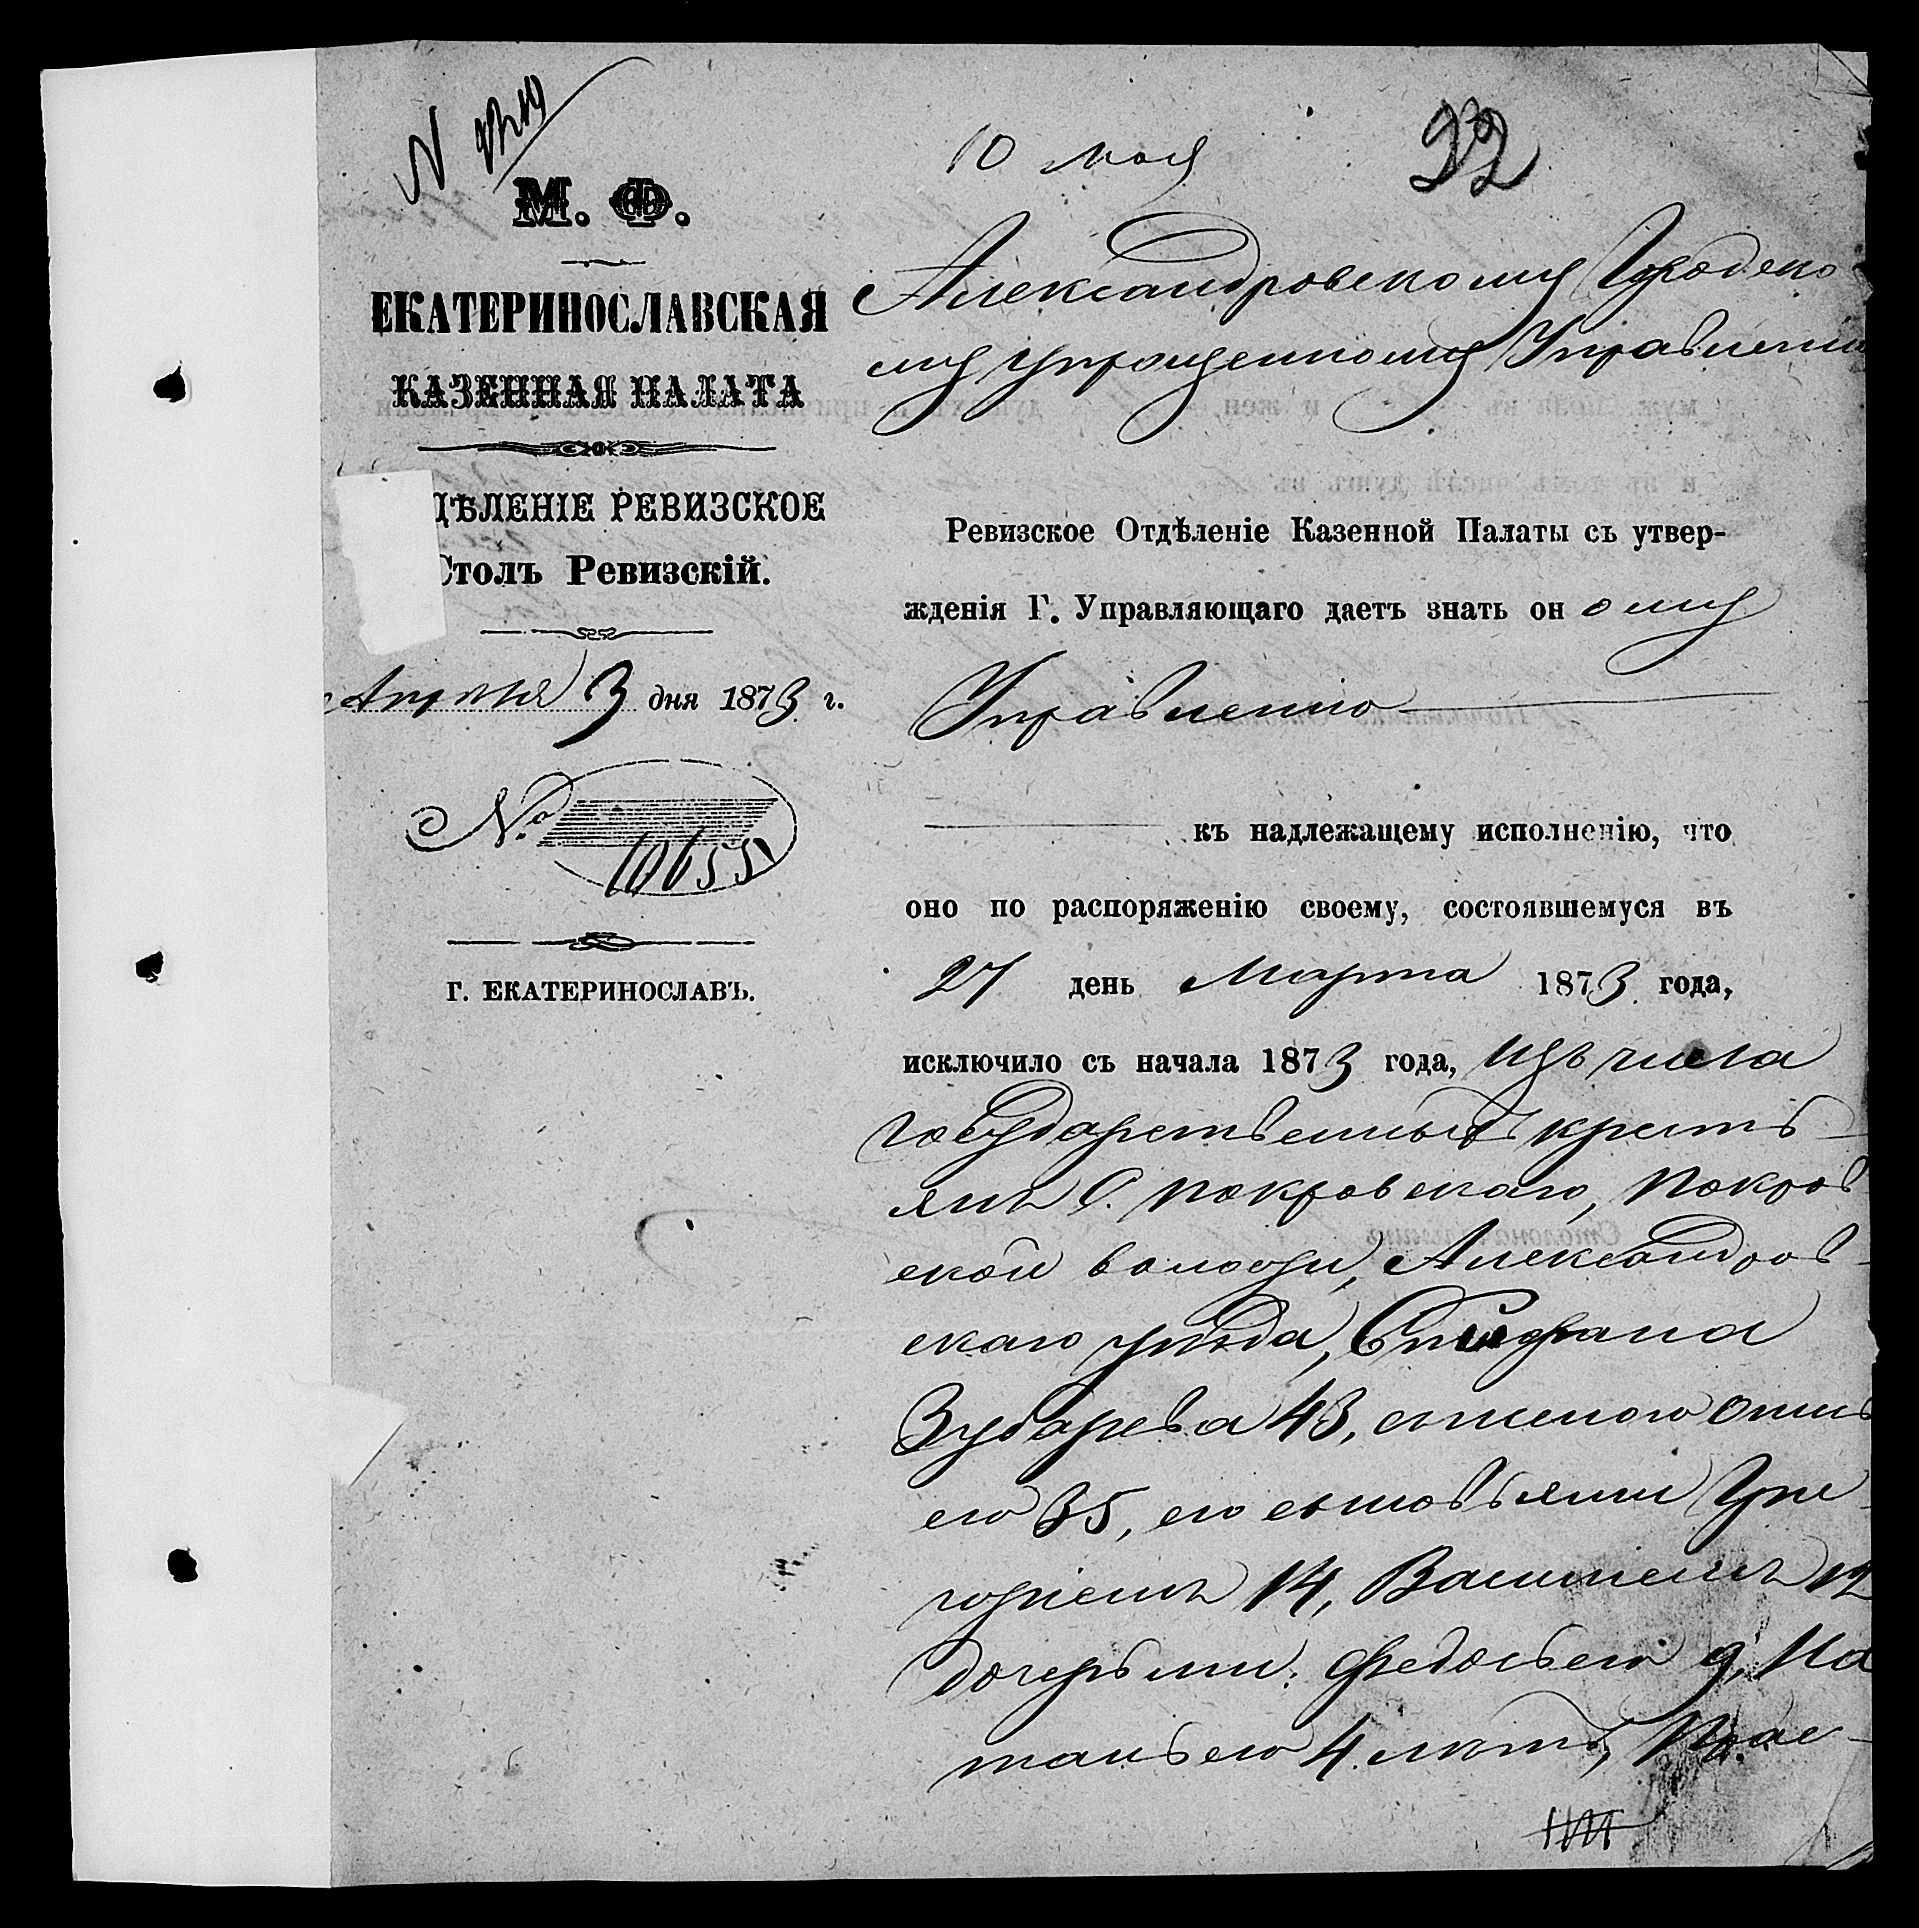 N
М. Ф.
ЕКАТЕРИНОСЛАВСКАЯ
КАЗЕННАЯ ПАЛАТА
ДѢЛЕНІЕ РЕВИЗСКОЕ
Столъ Ревизскій.
Апрѣля 3 дня 1873 г.
№ 10655
Г. ЕКАТЕРИНОСЛАВЪ.
10 мая
32
Александровскому Городско
му упрощенному Управленію
Ревизское Отдѣленіе Казенной Палаты съ утвер-
жденія Г. Управляющаго даетъ знать он ому
Управленію
къ надлежащему исполненію, что
оно по распоряженію своему, состоявшемуся въ
27 день Марта 1873 года,
исключило съ начала 1873 года, изъ числа
государственныхъ кресть
янъ С. Покровскаго, Покров
ской волости, Александров-
скаго уѣзда,
Зубарева 43, съ женою
его 35, его сыновьями Гри
горіемъ 14, Василіемъ 12
дочерьми: Федосьею 9, На
тальею 4 лѣтъ,